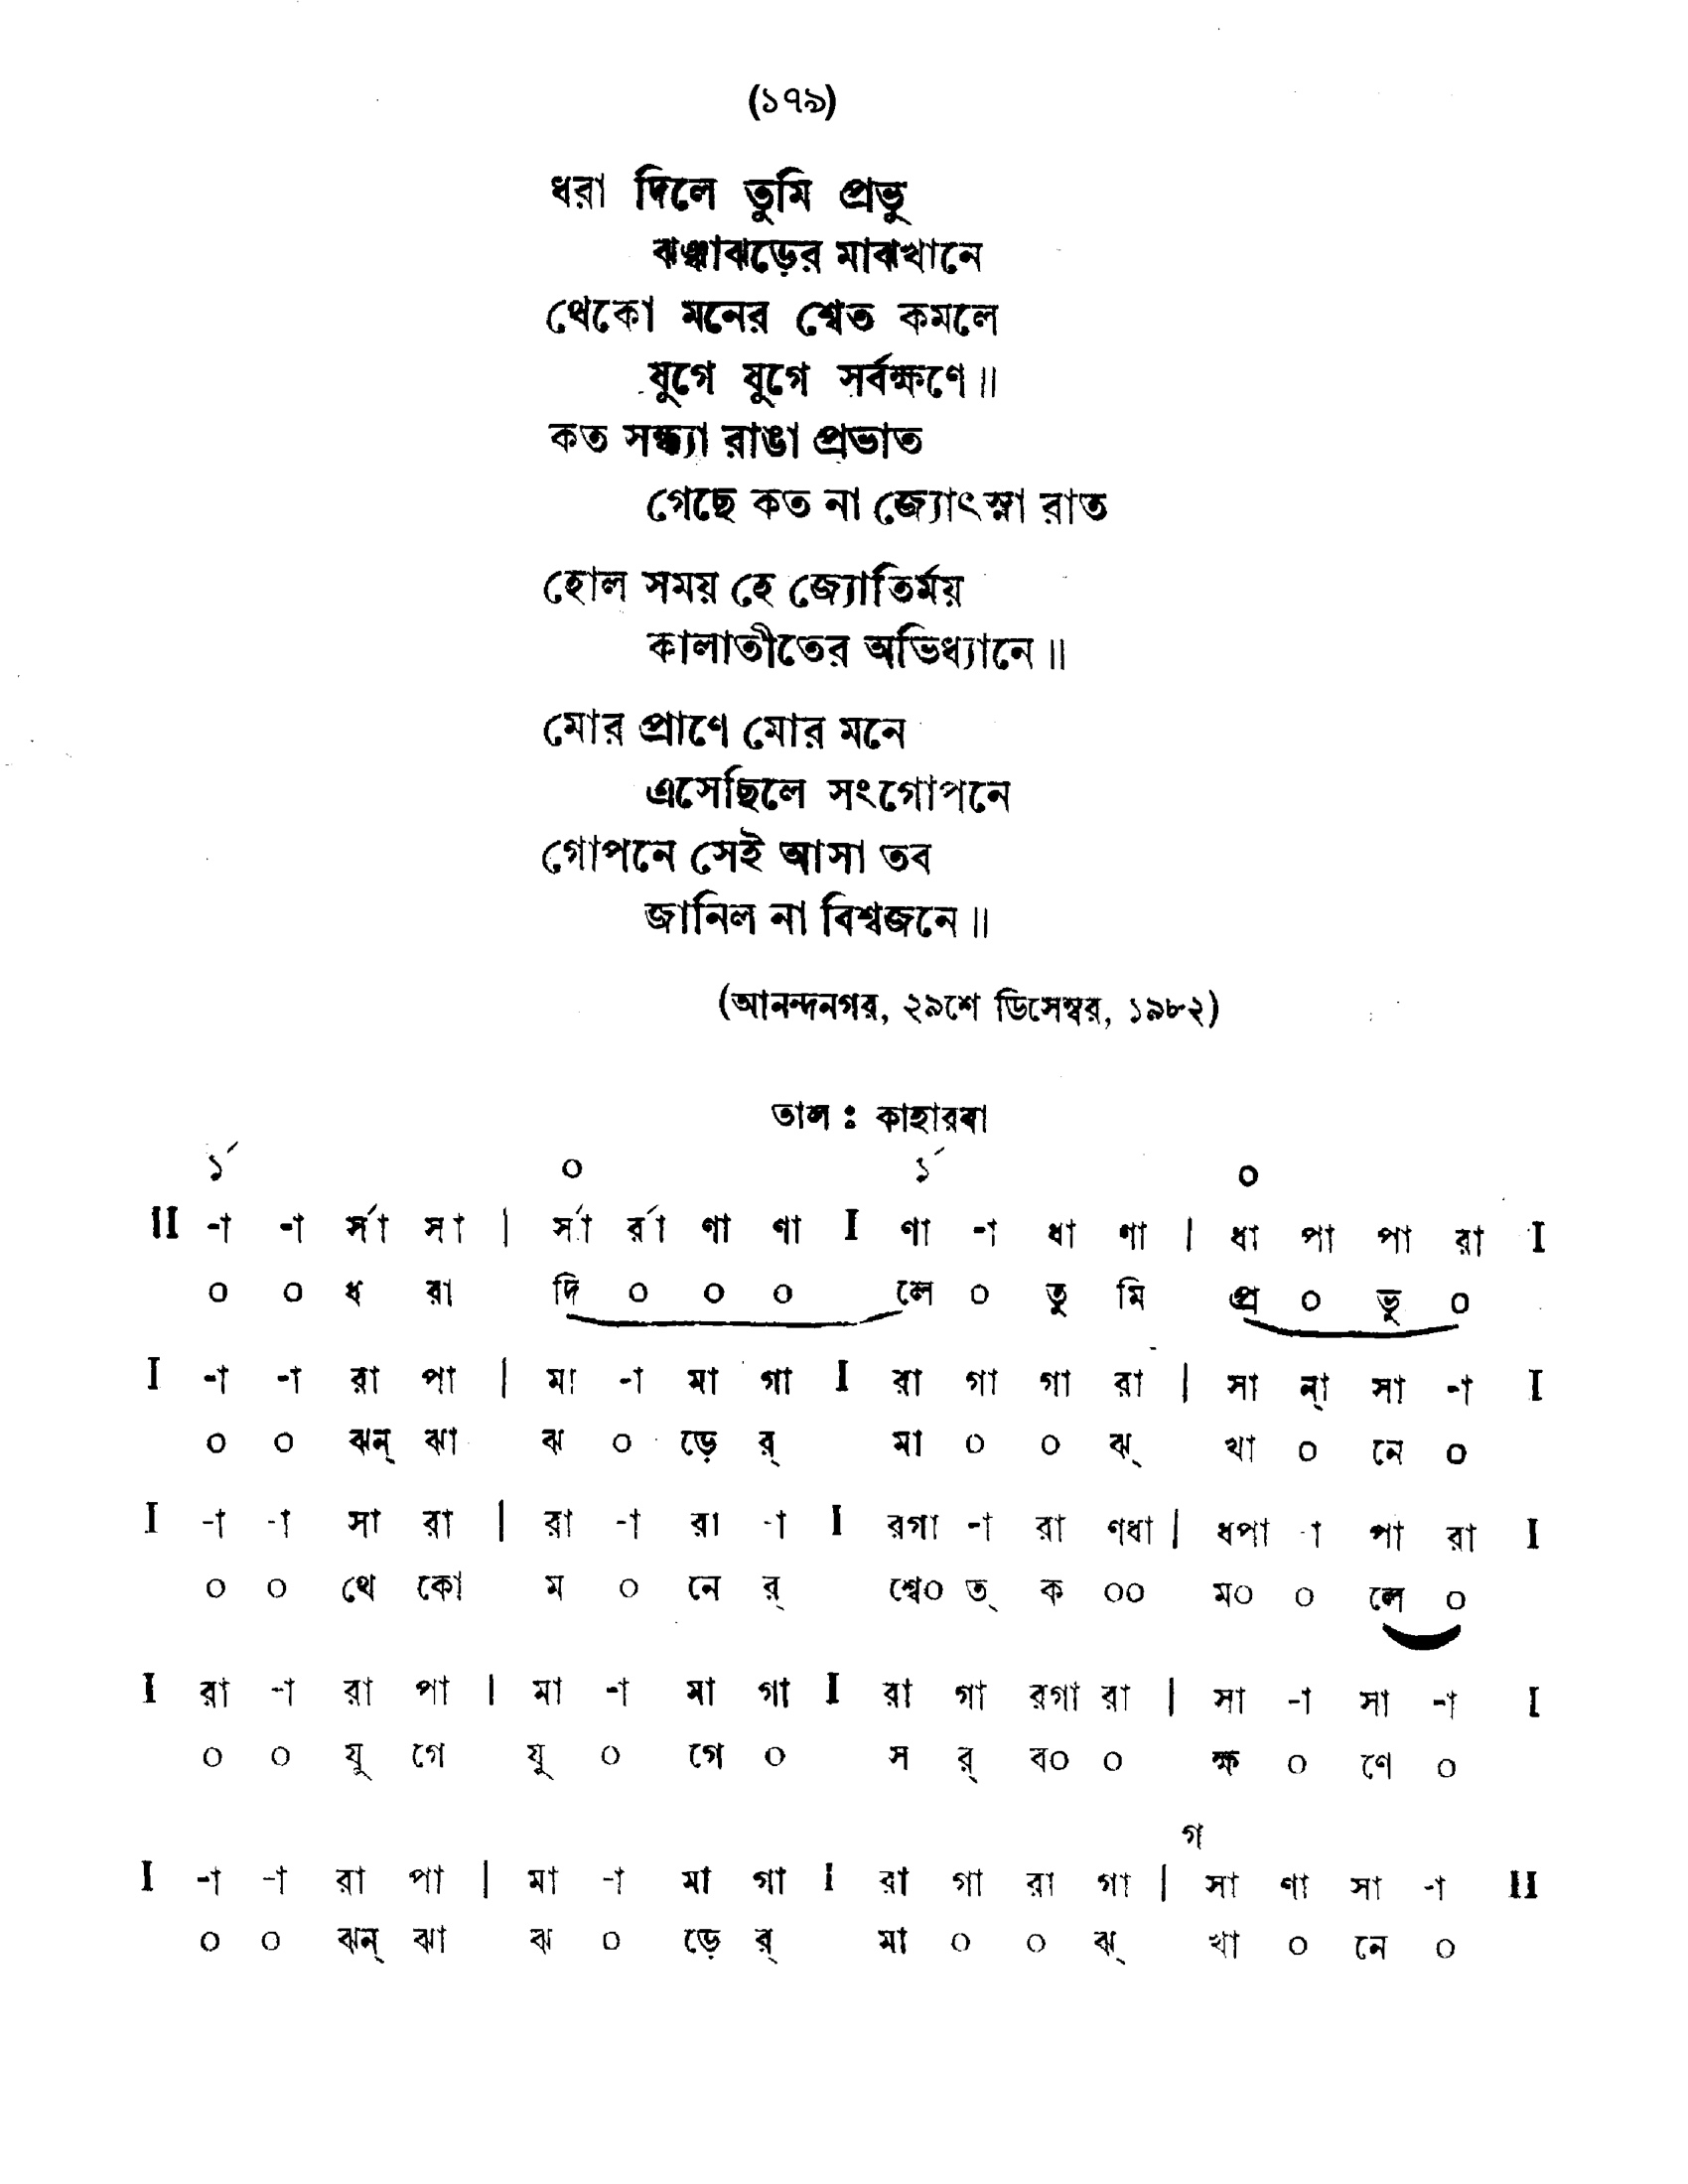 (১৭৯)
ধরা দিলে তুমি প্রভু
ঝঞ্ঝাঝড়ের মাঝখানে
থেকো মনের শ্বেত কমলে
যুগে যুগে সর্বক্ষণে॥
কত সন্ধ্যা রাঙা প্রভাত
গেছে কত না জ্যোৎস্না রাত
হোল সময় হে জ্যোতির্ময়
কালাতীতের অভিধ্যানে॥
মোর প্রাণে মোর মনে
এসেছিলে সংগোপনে
গোপনে সেই আসা তব
জানিল না বিশ্বজনে॥
(আনন্দনগর, ২৯শে ডিসেম্বর, ১৯৮২)
তাল ঃ কাহারবা
১´ ০ ১´ ০
II -া -া র্সা সা | র্সা র্রা ণা ণা I ণা -া ধা ণা | ধা পা পা রা I
০ ০ ধ রা দি ০ ০ ০ লে ০ তু মি প্র ০ ভু ০
I -া -া রা পা | মা -া মা গা I রা গা গা রা | সা ন্া সা -া I
০ ০ ঝন্ ঝা ঝ ০ ড়ে র্ মা ০ ০ ঝ্ খা ০ নে ০
I -া -া সা রা | রা -া রা -া I রগা -া রা ণধা | ধপা -া পা রা I
০ ০ থে কো ম ০ নে র্ শ্বে০ ত্ ক ০০ ম০ ০ লে ০
I রা -া রা পা | মা -া মা গা I রা গা রগা রা | সা -া সা -া I
০ ০ যু গে যু ০ গে ০ স র্ ব০ ০ ক্ষ ০ ণে ০
গ
I -া -া রা পা | মা -া মা গা I রা গা রা গা | সা ণা সা -া II
০ ০ ঝন্ ঝা ঝ ০ ড়ে র্ মা ০ ০ ঝ্ খা ০ নে ০